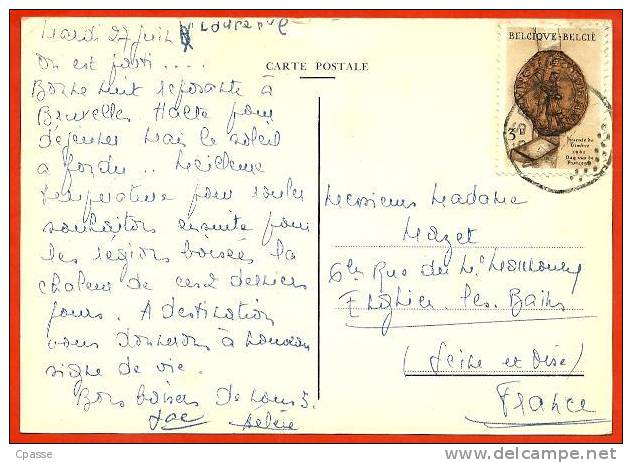 Mardi 27 Juin
On est parti ....
CARTE POSTALE
Bonne nuit reposante à
Bruxelles Halte pour
déjeuner mais le soleil
a fondu .. Meilleure
température pour rouler
souhaitons ensuite pour
les régions boisées la
chaleur de ces 2 derniers
jours. A destination
vous donnerons à nouveau
signe de vie.
Bons baisers de nous 3.
Jac
BELGIQUE-BELGIË
3F
Journée du
Timbre
1961
Dag van de
Postzegel
Messieurs Madame
Mazet
6 bis Rue du
Enghien les Bains
(Seine et Oise)
France
Cpasse
www.delcampe.net